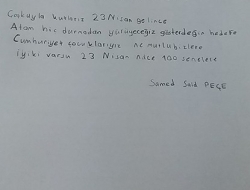 Coşkuyla kutlarız 23 Nisan gelince
Atam hiç durmadan yürüyeceğiz gösterdeğin hedefe
Cumhuriyet çocuklarıyız ne mutlu bizlere
iyiki varsın 23 Nisan nice 100 senelere
Samed Said PEÇE